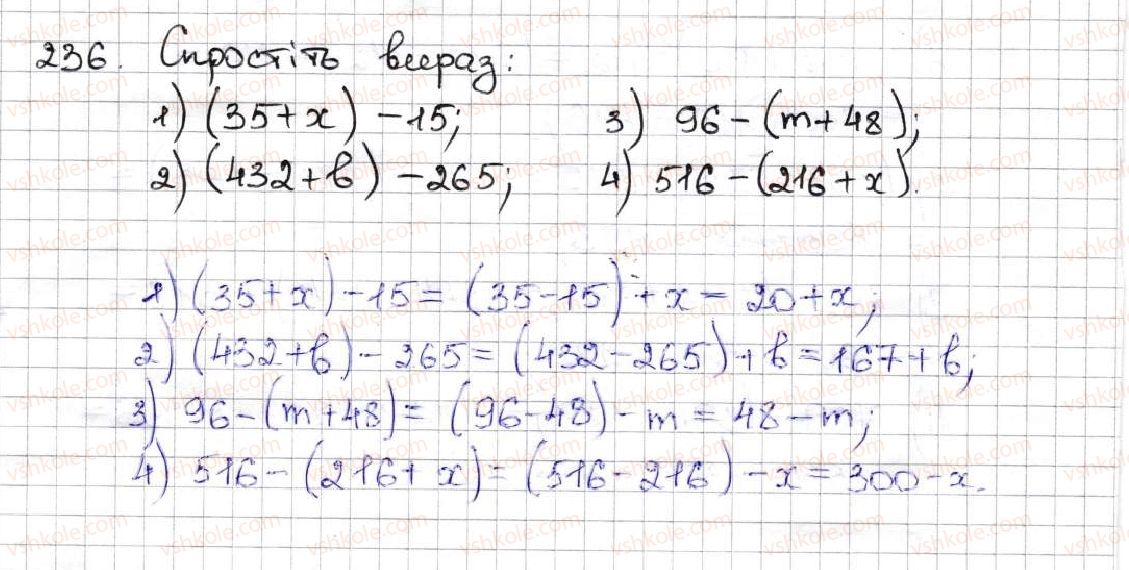 236. Спростіть вираз:
1) (35+x) -15;   3) 96-(m+48);
2) (432+b) -265;   4) 516-(216+x).
1) (35+x)-15 = (35-15)+x = 20+x;
2) (432+b)-265 = (432-265)+b = 167+b;
3) 96-(m+48) = (96-48)-m = 48-m;
4) 516-(216+x) = (516-216)-x = 300-x.